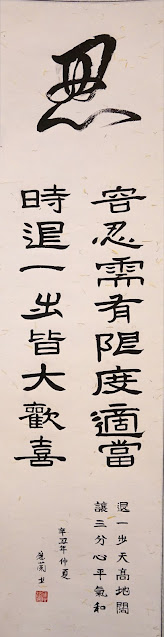 忍
容忍需有限度適當
時退一步皆大歡喜
退一步天高地闊
讓三分心平氣和
辛丑年仲夏